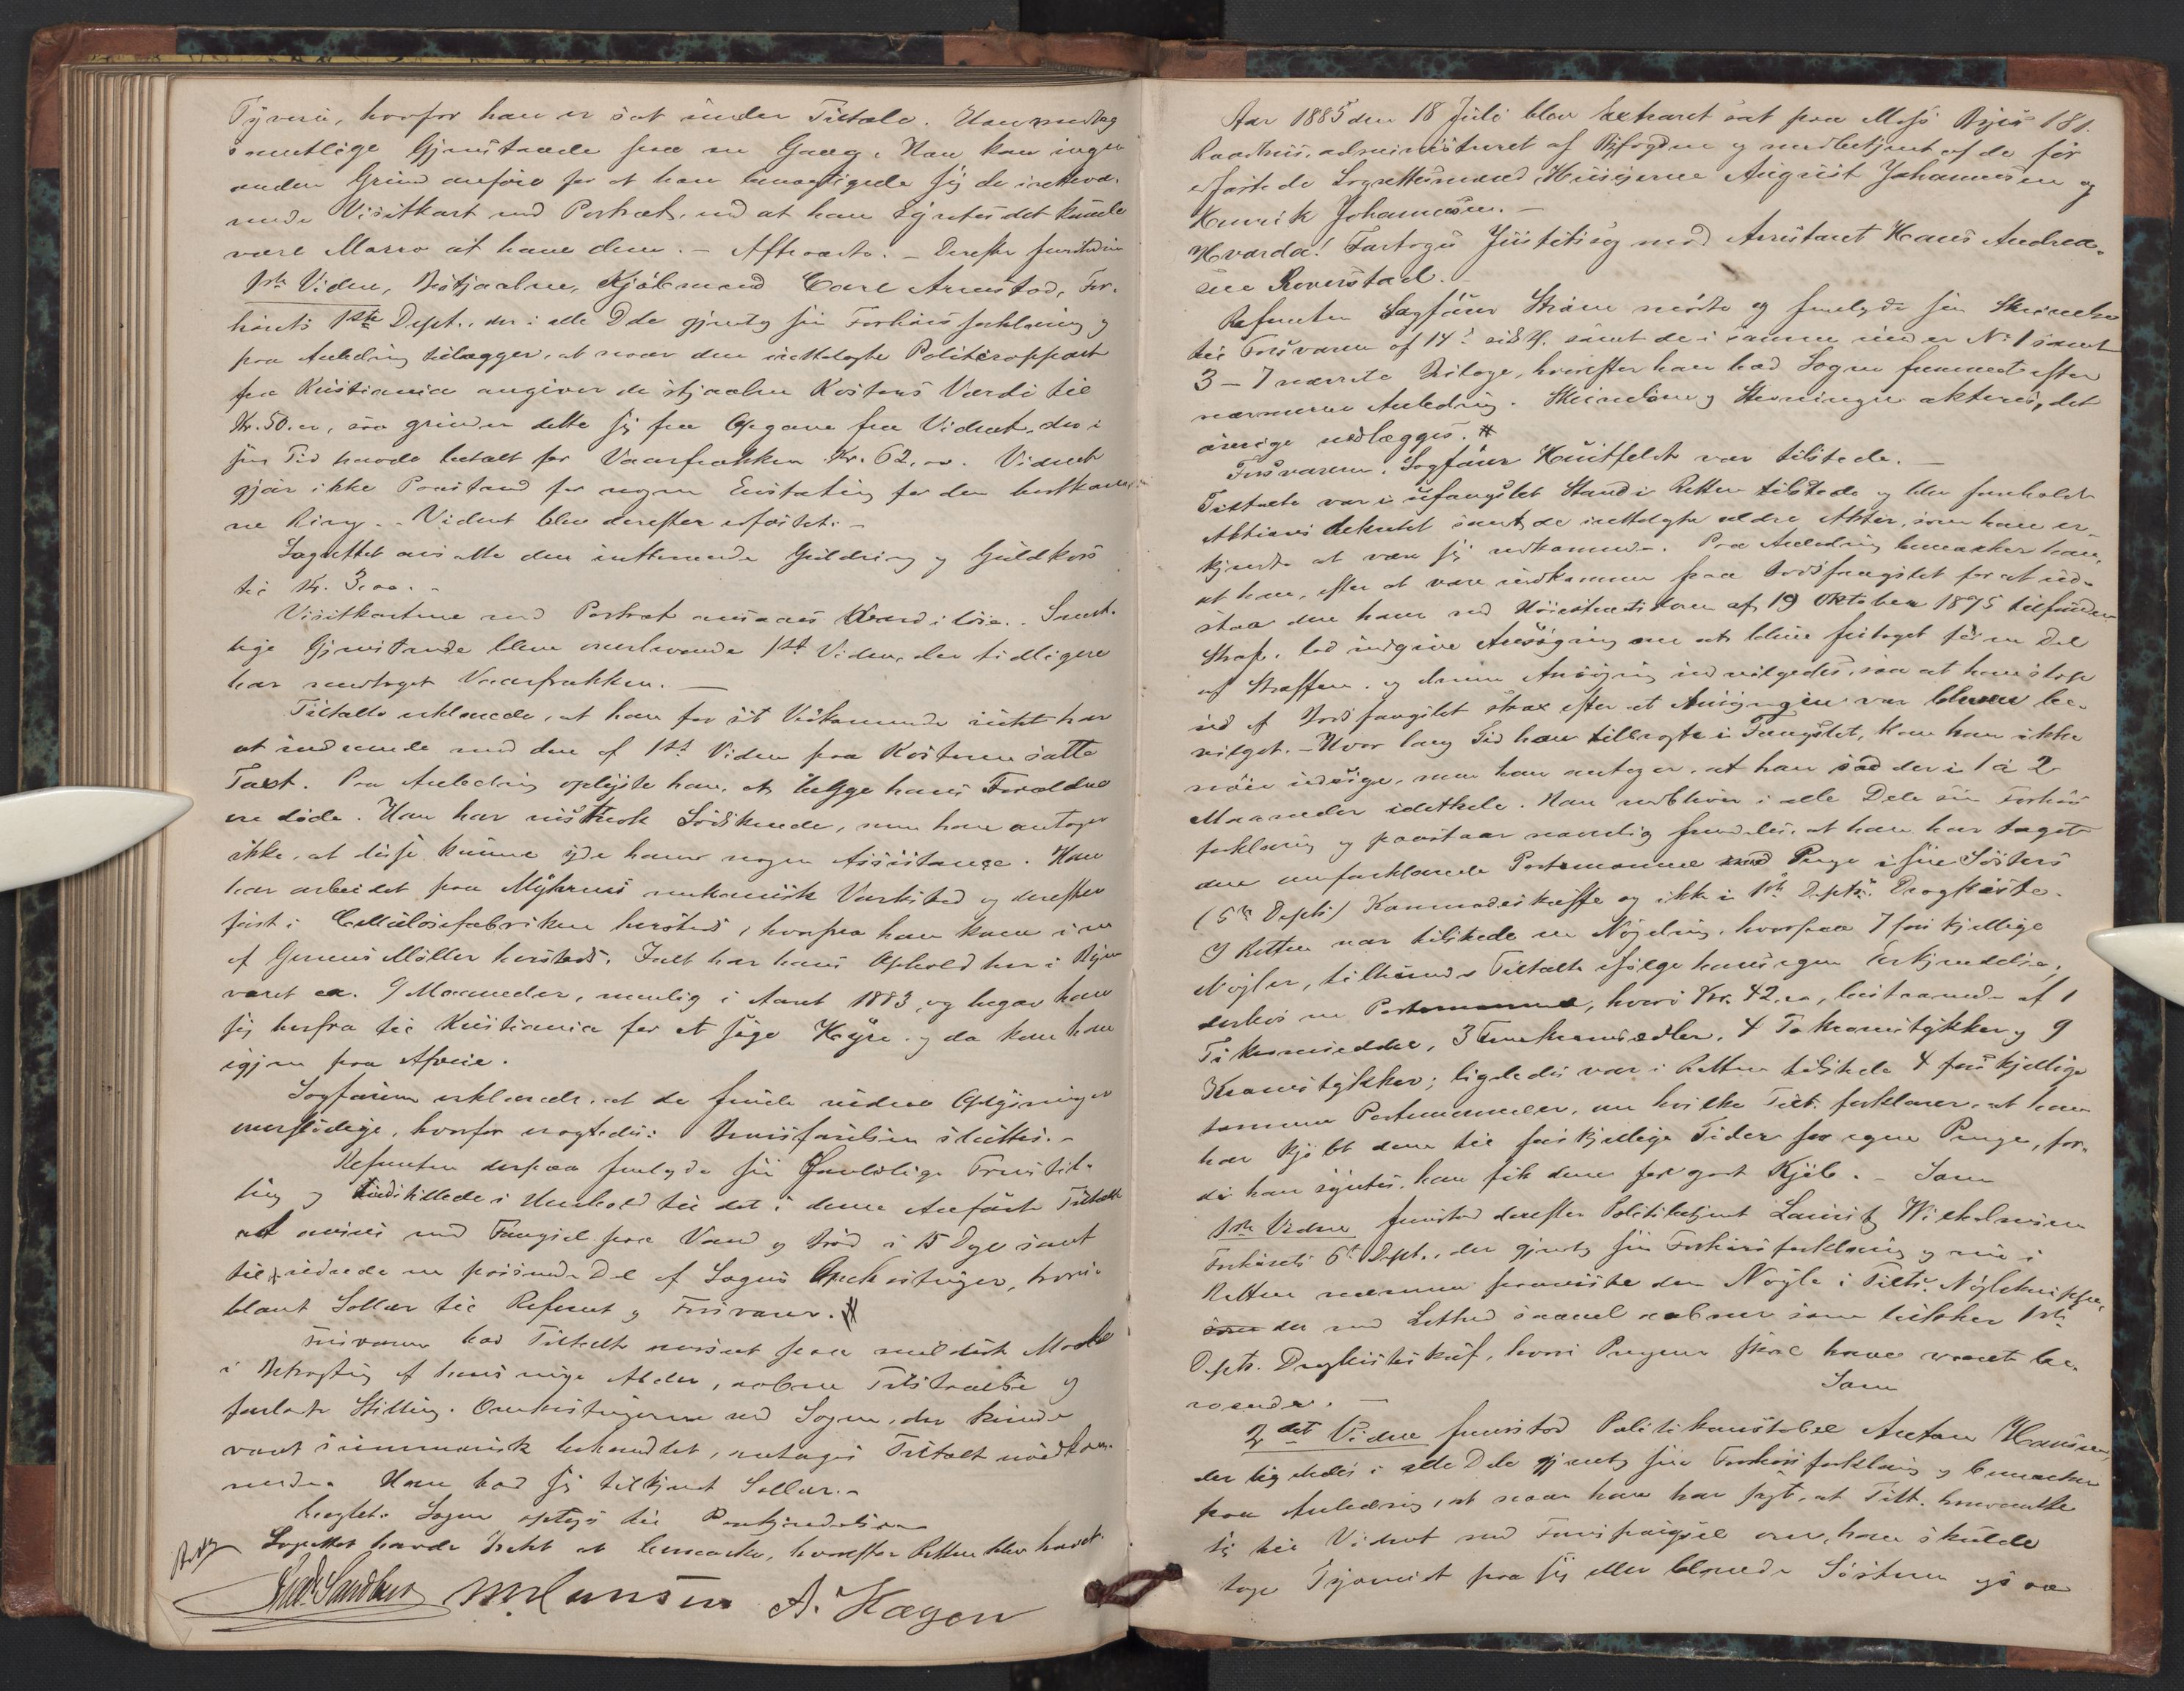 Tyveri, hvorfor han er sat under Tiltale. Han modtog
samtlige Gjenstande paa en Gang. Han kan ingen
anden Grund anføre for at han bemægtigede sig de
Visitkart med Portræt, end at han syntes det kunde
være Morro at have dem. – Aftraadte. – Derefter fremstod som
1ste Vidne, Bestjaalne, Kjøbmand Carl Arnestad, For-
hørets 1ste Dept., der i alle Dele gjentog sin Forhørsforklaring og
paa Anledning tillægger, at naar den irettelagte Politirapport
fra Kristiania angiver de stjaalne Kosters Værdi til
Kr. 50.00, saa grunder dette sig paa Opgave fra Vidnet, der i
sin Tid havde betalt for Vaarfrakken Kr. 62.00. Vidnet
gjør ikke Paastand paa nogen Erstatning for den bortkom-
ne Ring. – Vidnet blev derefter edfæstet. –
Lagrettet ansatte den Guldring og Guldkors
til Kr. 3.00. –
Visitkortene med Portræt ansaaes værdiløse. Samt-
lige Gjenstande blev overleverede 1ste Vidne, der tidligere
har modtaget Vaarfrakken. –
Tiltalte erklærede, at han for sit Vedkommende intet har
at indvende mod den af 1ste Vidne paa Kosterne satte
Taxt. Paa Anledning oplyste han, at begge hans Forældre
ere døde. Han har Søskende, men han antager
ikke, at disse kunne yde ham nogen Assistance. Han
har arbeidet paa Myhrens mekaniske Værksted og derefter
først i Cellulosefabriken hersteds, hvorfra han kom
Møller hersteds. Ialt har hans Ophold her i Byen
varet ca. 9 Maaneder, nemlig i Aaret 1883, og begav han
sig herfra til Kristiania for at søge Hyre og da kom han
igjen paa Afveie.
Sagføreren erklærede, at de fandt videre Oplysninger
overflødige, hvorfor Bevisførelsen sluttes. –
Referenten derpaa fremlagde sin Fremstil-
ling og indstillede i Henhold til det i denne Anførte Tiltalte
at ansees med Fængsel paa Vand og Brød i 15 Dage samt
til at udrede en passende Del af Sagens Omkostninger, hvori-
blant Sallær til Referent og Forsvarer.
Forsvareren bad Tiltalte anseet paa mildeste Maade
i Betragtning af hans unge Alder, aabne Tilstaaelse og
forladte Stilling. Omkostningerne ved Sagen, der kunde
været summarisk behandlet, antages Tiltalte uvedkom-
mende. Han bad sig tilkjendt Sallær. –
Sagen optages til Paakjendelse. –
Lagrettet havde Intet at bemærke, hvorefter Retten blev hævet.
M. Hansen A. Hagen
Aar 1885 den 18 Juli blev Extraret sat paa Moss Byes 181.
Raadhus, administreret af Byfogden og medbetjent af de før
edfæstede Lagrettesmænd Huseierne August Johannesen og
Henrik Johannesen. –
Hvorda! Foretoges Justitssag mod Arrestant Hans Andrea-
sen Roverstad. –
Referenten Sagfører Strøm mødte og fremlagde sin Skrivelse
til Forsvareren af 14de samt de i samme under No 1 samt
3 – 7 nævnte Bilage, hvorefter han bad Sagen fremmet efter
nærmere Anledning. Skrivelsen og Stevningen akteres, det
øvrige vedlægges. #
Forsvareren, Sagfører Huitfeldt var tilstede. –
Tiltalte var i ufængslet Stand i Retten tilstede og blev foreholdt
Aktions dekretet samt de irettelagte ældre Akter, som han er-
kjendte at være sig vedkommende. Paa Anledning bemærker han,
at han, efter at være indkommen paa Bodsfængslet for at ud-
staa den ham ved Høiesteretsdom af 19 Oktober 1875 tilfundne
Straf, lod indgive Ansøgning om at blive fritaget for en Del
af Straffen, og denne Ansøgning indvilgedes, saa at han slap
ud af Bodsfængslet strax efter at Ansøgningen var bleven be-
vilget. – Hvor lang Tid han tilbragte i Fængslet, kan han ikke
nøie udsige, men han antager, at han sad der i 1 à 2
Maaneder idethele. Han vedbliver i alle Dele sin Forhørs
forklaring og paastaar navnlig fremdeles, at han har taget
den omforklarede Portemonnæ med Penge i sin Søsters
(5te Depts) Kommodeskuffe og ikke i 1ste Depts. Dragkiste.
I Retten var tilstede en Nøglering, hvorpaa 7 forskjellige
Nøgler, tilhørende Tiltalte ifølge hans egen Erkjendelse,
derhos en Portemonnæ, hvori Kr. 42.00, bestaaende af 1
Ti kroneseddel, 3 Femkronesedler, 4 To Kronestykker og 9
Kronestykker; ligeledes var i Retten tilstede 4 forskjellige
tomme Portemonnæer, om hvilke Tilt. forklarer, at han
har kjøbt dem til forskjellige Tider for egne Penge, for-
di han syntes, han fik dem for godt Kjøb. – Som
1ste Vidne fremstod derefter Politibetjent Lauritz Wilhelmsen
Forhørets 6te Dept., der gjentog sin Forhørsforklaring og nu i
Retten nærmere paaviste den Nøgle i Tilts. Nøgleknippe,
som der med Lethed saavel aabner som lukker 1ste
Depts. Dragkisteskuf, hvori Pengene skal have været be-
roende. – Som
2det Vidne fremstod Politikonstabel Anton Hansen,
der ligeledes i alle Dele gjentog sin Forhørsforklaring og bemærker
paa Anledning, at naar han har sagt, at Tilt. henvendte
sig til Vidnet med Forespørgsel om, han skulde
tage Tyveriet paa sig eller blande Søsteren ogsaa